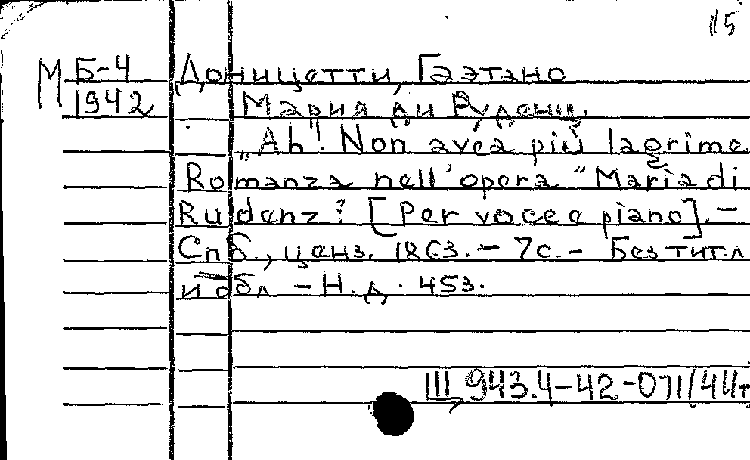 115
М Б-4 Доницетти, Гаэтано
1942 Мария ди Руденц.
„Ah"! Non avea più lagrime
Romanza nell'opera "Maria di
Rudenz? [Per voce e piano]. –
Спб., ценз. 1863. – 7с. – Без тит.л
и обл – Н.д. 453.
Ш 943.4-42-071/44т